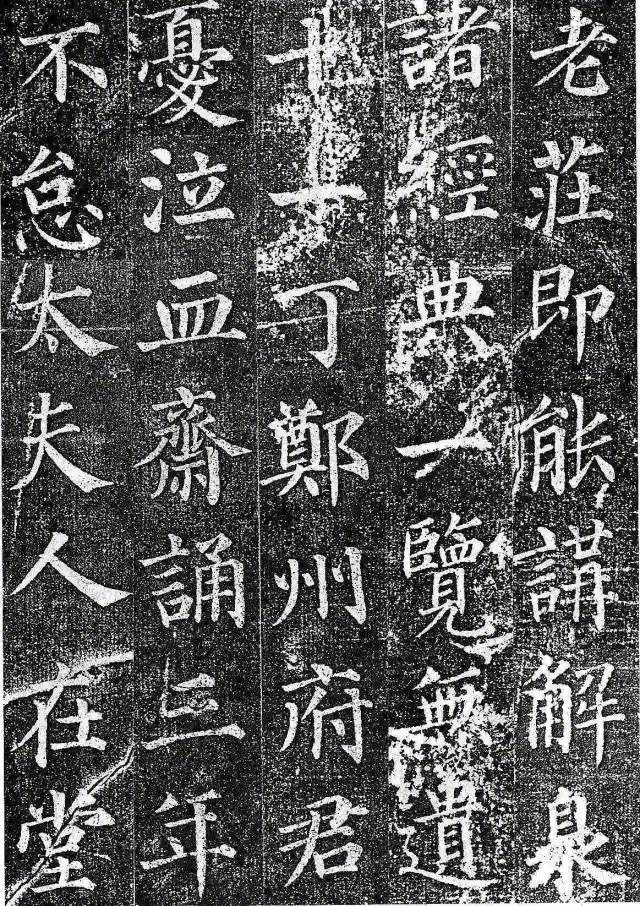 老莊即能講解臮
諸經典一覽無遺
丁鄭州府君
憂泣血齋誦三年
不怠太夫人在堂